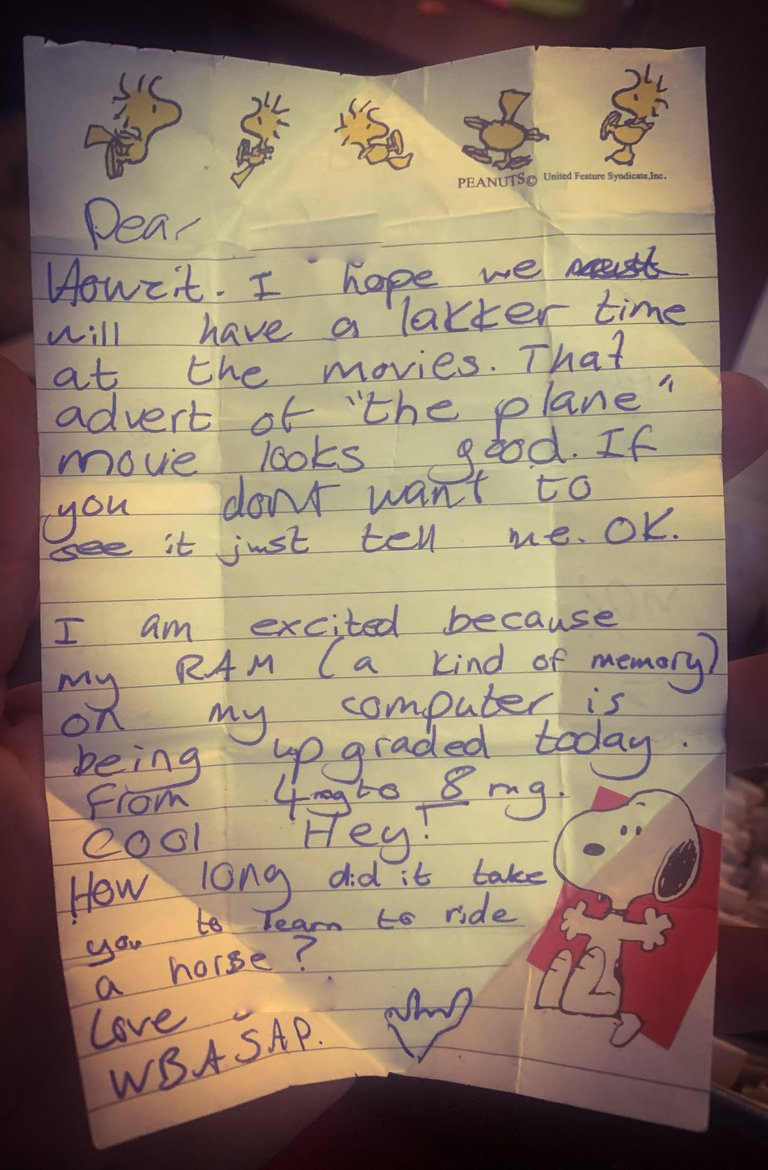 PEANUTS© United Feature Syndicate,Inc.
Dear
Howzit. I hope we
will have a lakker time
at the movies. That
advert of "the plane"
movie looks good. If
you dont want to
see it just tell me. OK.
I am excited because
my RAM (a kind of memory)
on my computer is
being upgraded today.
from 4mg to 8 mg.
cool Hey!
How long did it take
you to learn to ride
a horse?
Love
WBASAP.